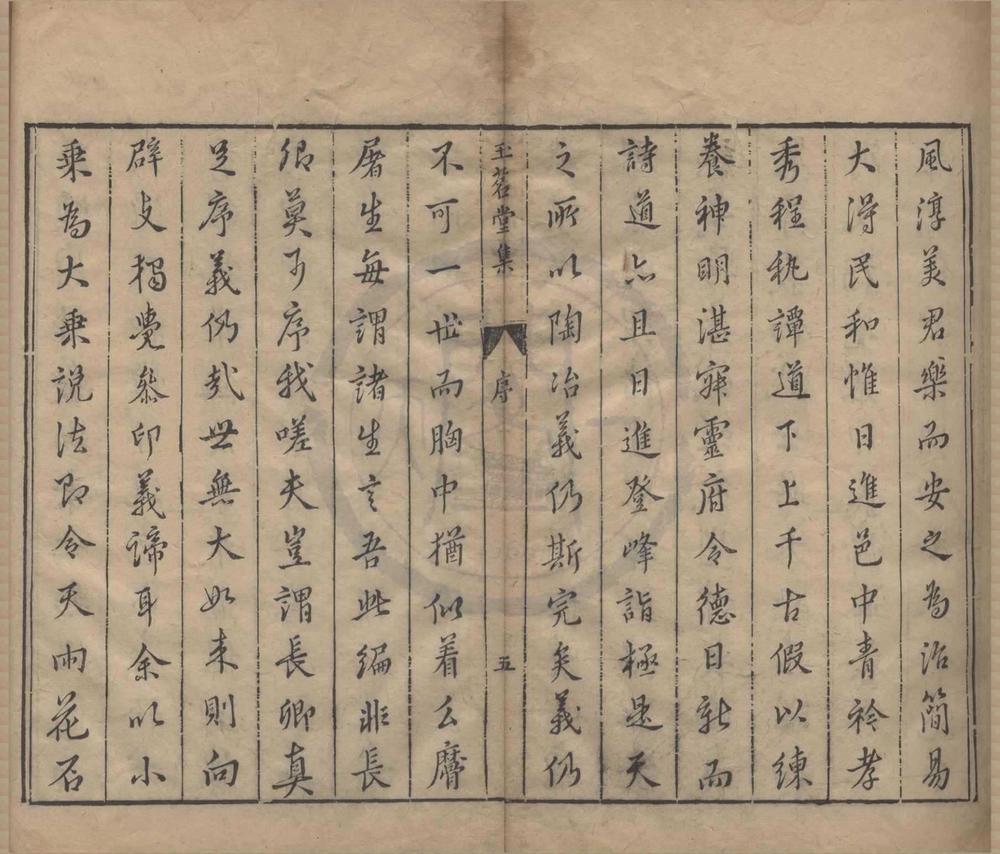 風淳美君樂而安之為治簡易
大淂民和惟日進邑中青衿孝
秀程秇譚道下上千古假以練
養神明湛寂靈府令德日新而
詩道亦且日進登峰詣極是天
之所以陶冶義仍斯完矣義仍
玉茗堂集 序 五
不可一世而胸中猶似着么麿
屠生每謂諸生言吾此編非長
卿莫可序我嗟夫豈謂長卿真
足序義仍哉世無大如来則向
辟支獨覺叅印義諦耳余以小
乘為大乘說法即令天雨花石